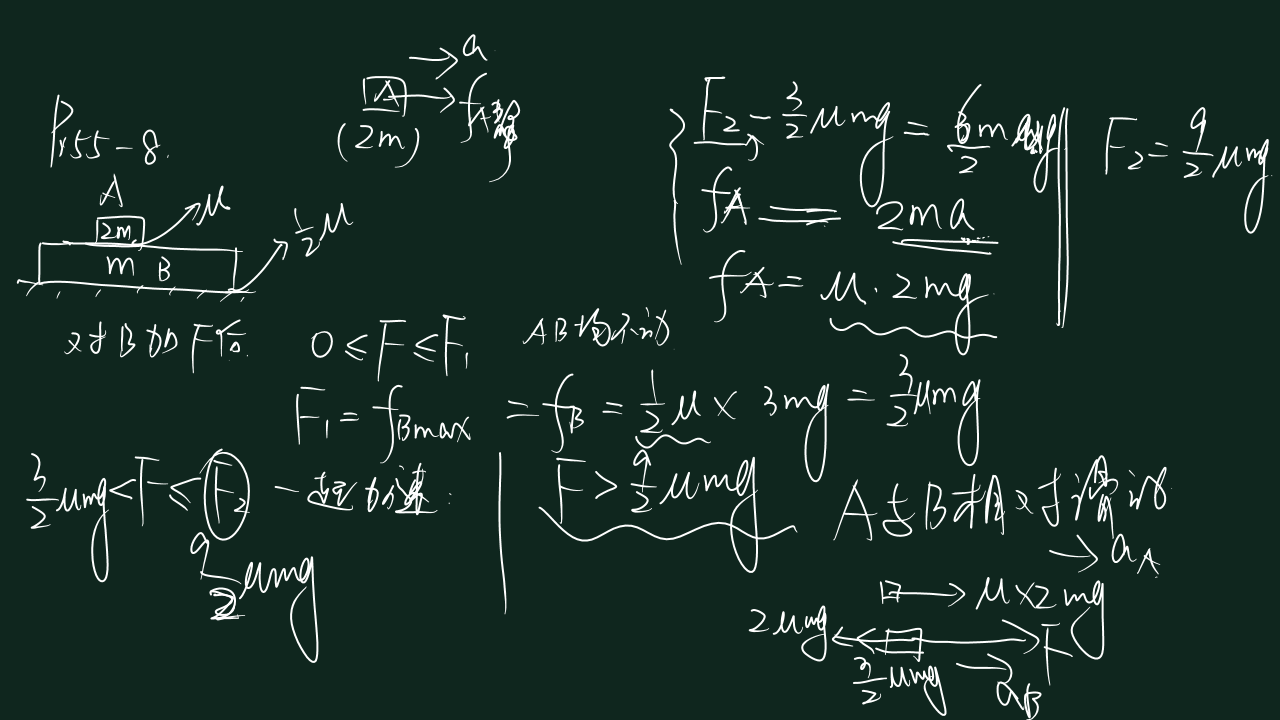 P155-8.
A
2m
μ
m B
½μ
→ a
A → fA静
(2m)
F₂ - 3/2 μmg = 3m
fA = 2ma
fA = μ·2mg
F₂ = 9/2 μmg
对B加F后 0 ≤ F ≤ F₁ AB均不动
F₁ = fBmax = fB = ½μ × 3mg = 3/2 μmg
3/2 μmg < F ≤ F₂ 一起加速.
9/2 μmg
F > 9/2 μmg A与B相对滑动
→ aA
→ μ×2mg
2μmg F
3/2 μmg → aB